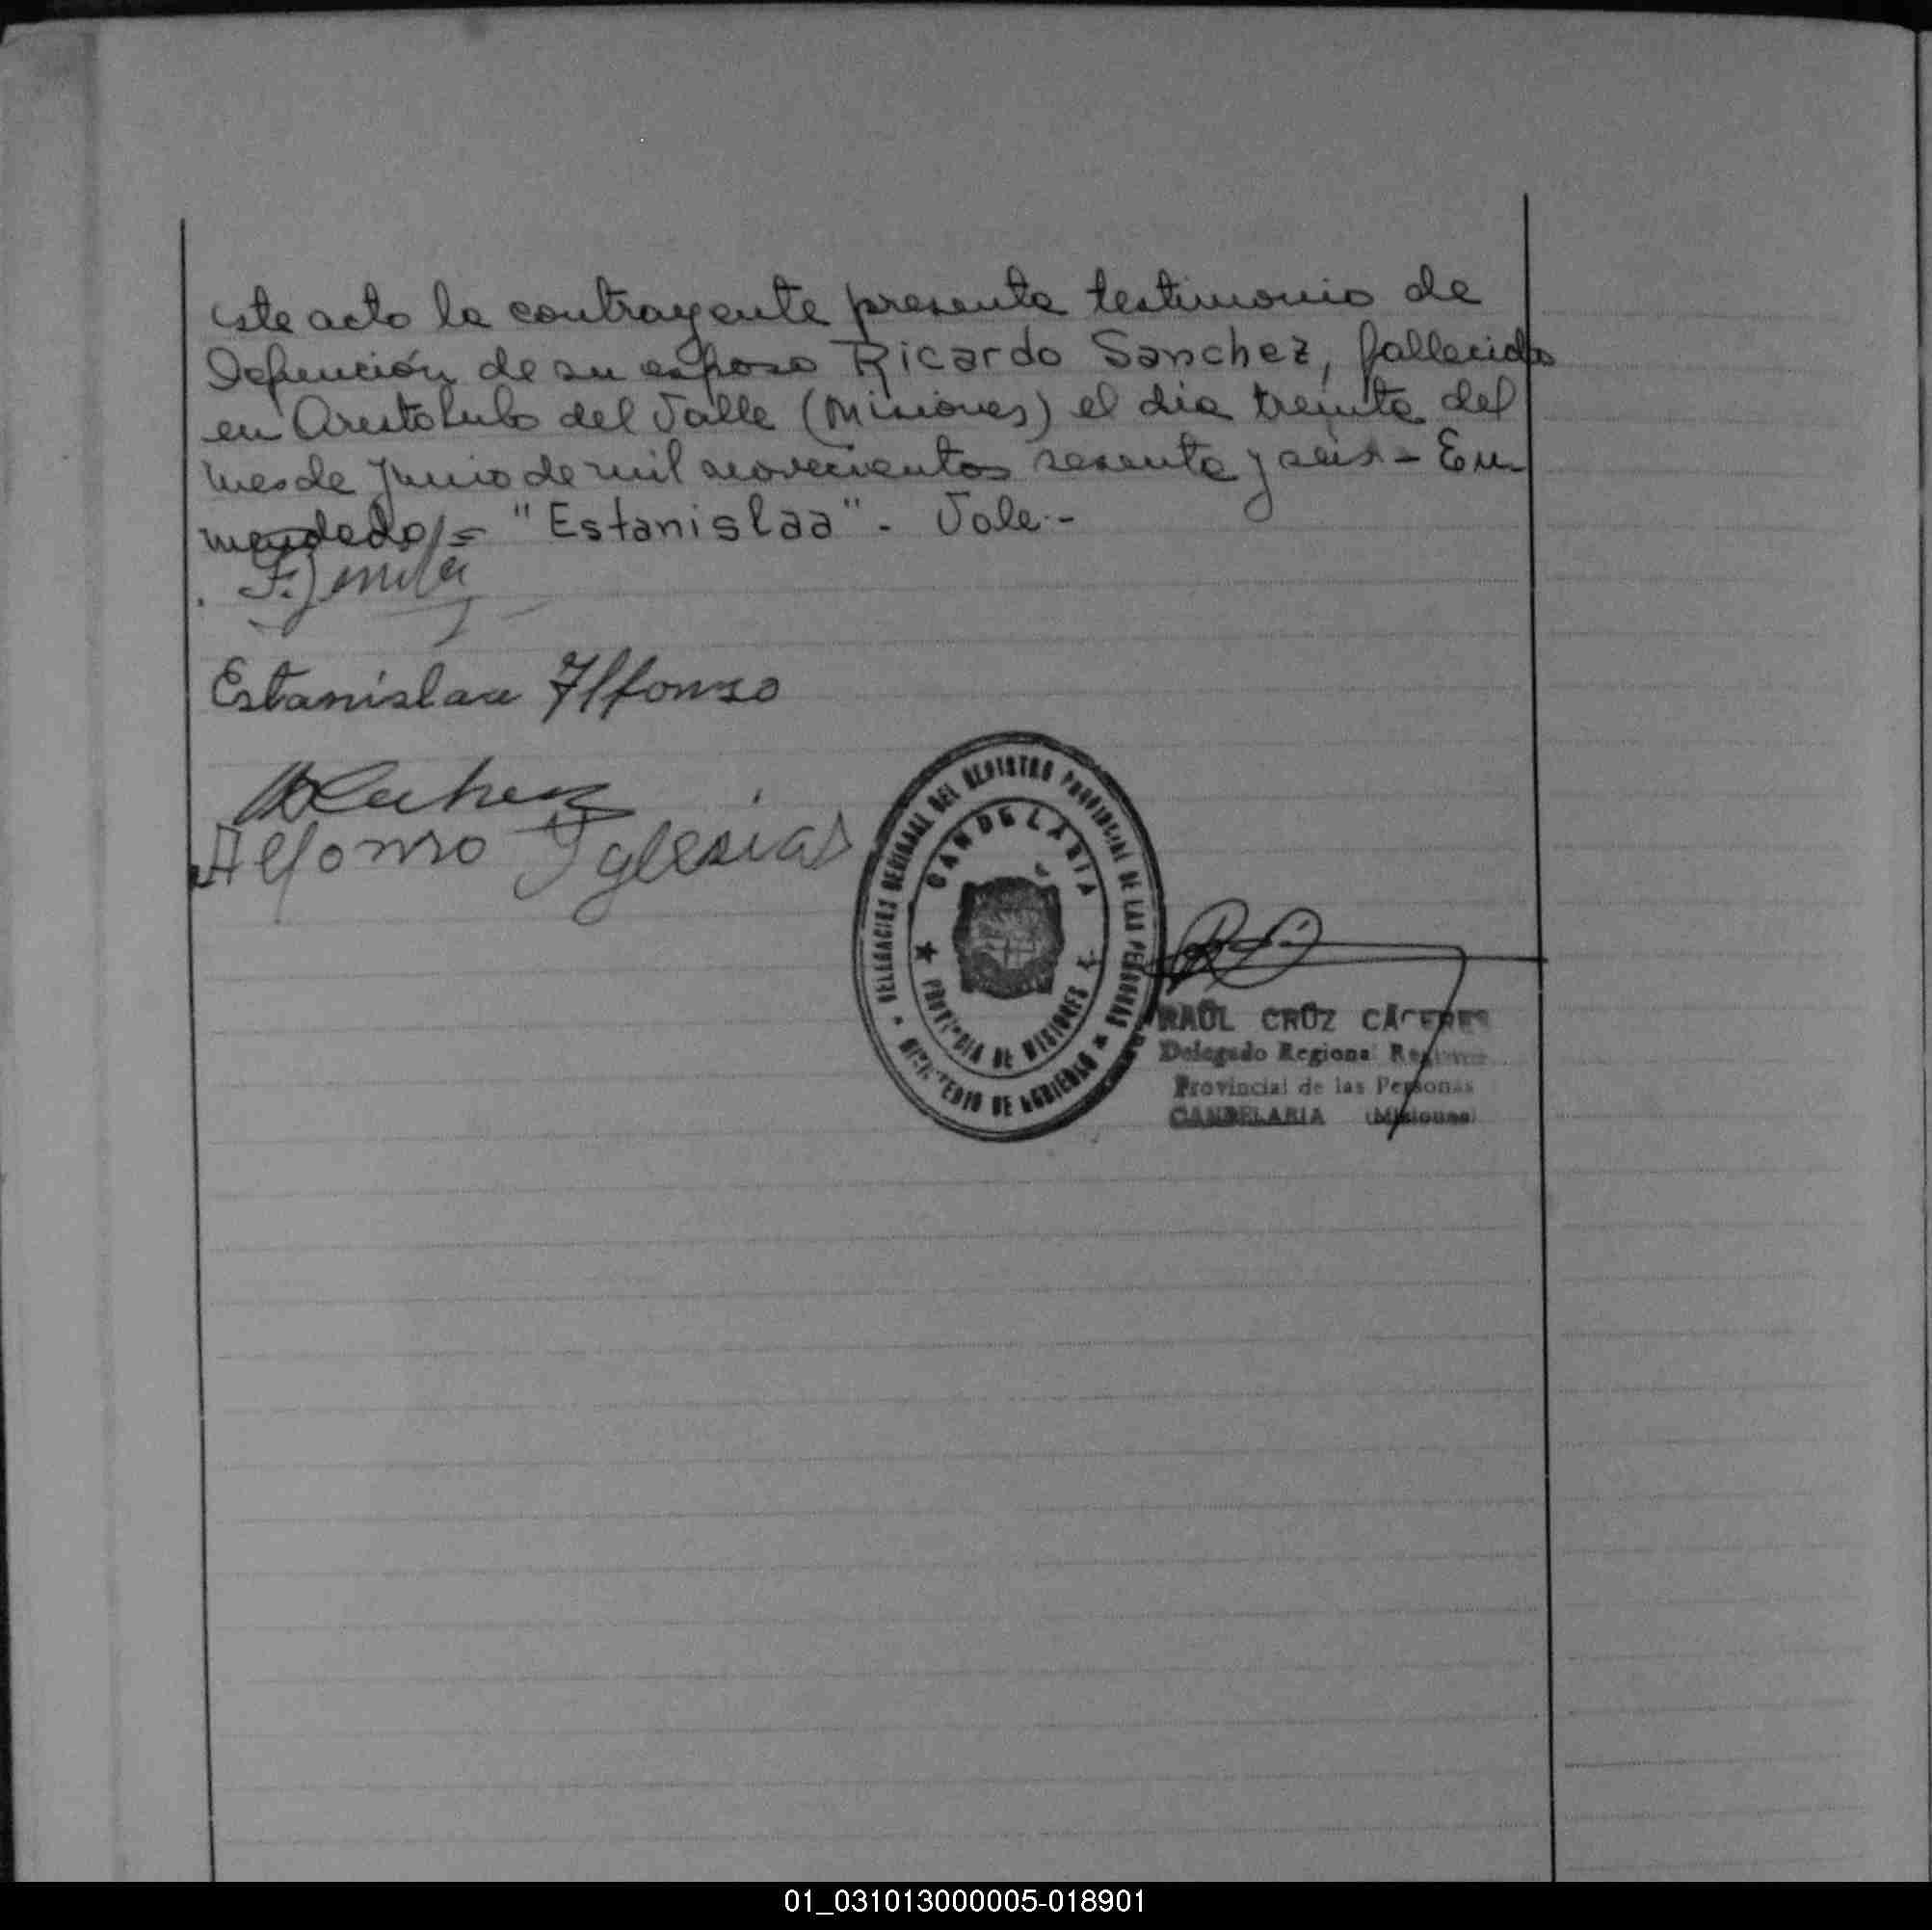 este acto la contrayente presenta testimonio de
Defunción de su esposo Ricardo Sanchez, fallecido
en Aristobulo del Valle (Misiones) el dia treinta del
mes de Junio de mil novecientos sesenta y seis - En-
mendado/= "Estanislaa" - Vale.-
Estanislaa Alfonso
Alfonso Yglesias
DELEGACION REGIONAL DEL REGISTRO PROVINCIAL DE LAS PERSONAS
MINISTERIO DE GOBIERNO
CANDELARIA
PROVINCIA DE MISIONES
RAÚL CRUZ CÁCERES
Delegado Regional Registro
Provincial de las Personas
CANDELARIA (Misiones)
01_031013000005-018901